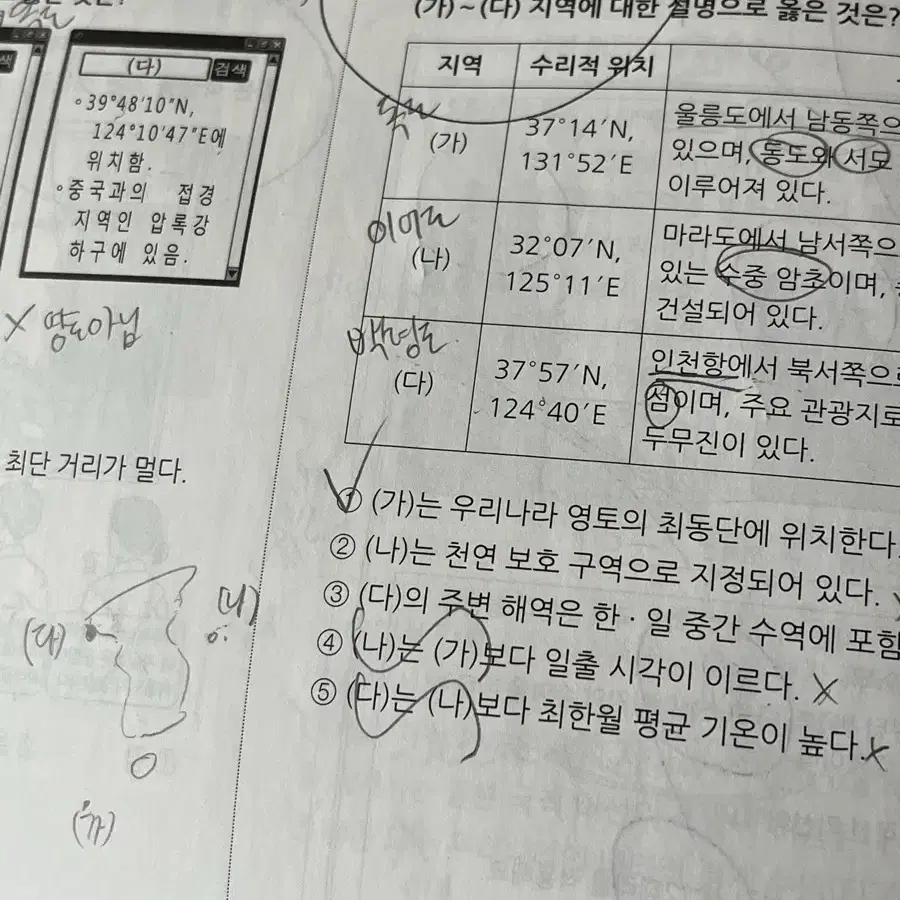 (다) 검색
◦39°48′10″N,
124°10′47″E에
위치함.
◦중국과의 접경
지역인 압록강
하구에 있음.
X 영토아님
최단 거리가 멀다.
(다)
(나)
(가)
(가)~(다) 지역에 대한 설명으로 옳은 것은?
지역 수리적 위치
독도
(가) 37°14′N, 131°52′E
울릉도에서 남동쪽으
있으며, 동도와 서도
이루어져 있다.
이어도
(나) 32°07′N, 125°11′E
마라도에서 남서쪽으
있는 수중 암초이며,
건설되어 있다.
백령도
(다) 37°57′N, 124°40′E
인천항에서 북서쪽으로
섬이며, 주요 관광지로
두무진이 있다.
① (가)는 우리나라 영토의 최동단에 위치한다.
② (나)는 천연 보호 구역으로 지정되어 있다.
③ (다)의 주변 해역은 한·일 중간 수역에 포함
④ (나)는 (가)보다 일출 시각이 이르다. X
⑤ (다)는 (나)보다 최한월 평균 기온이 높다. X